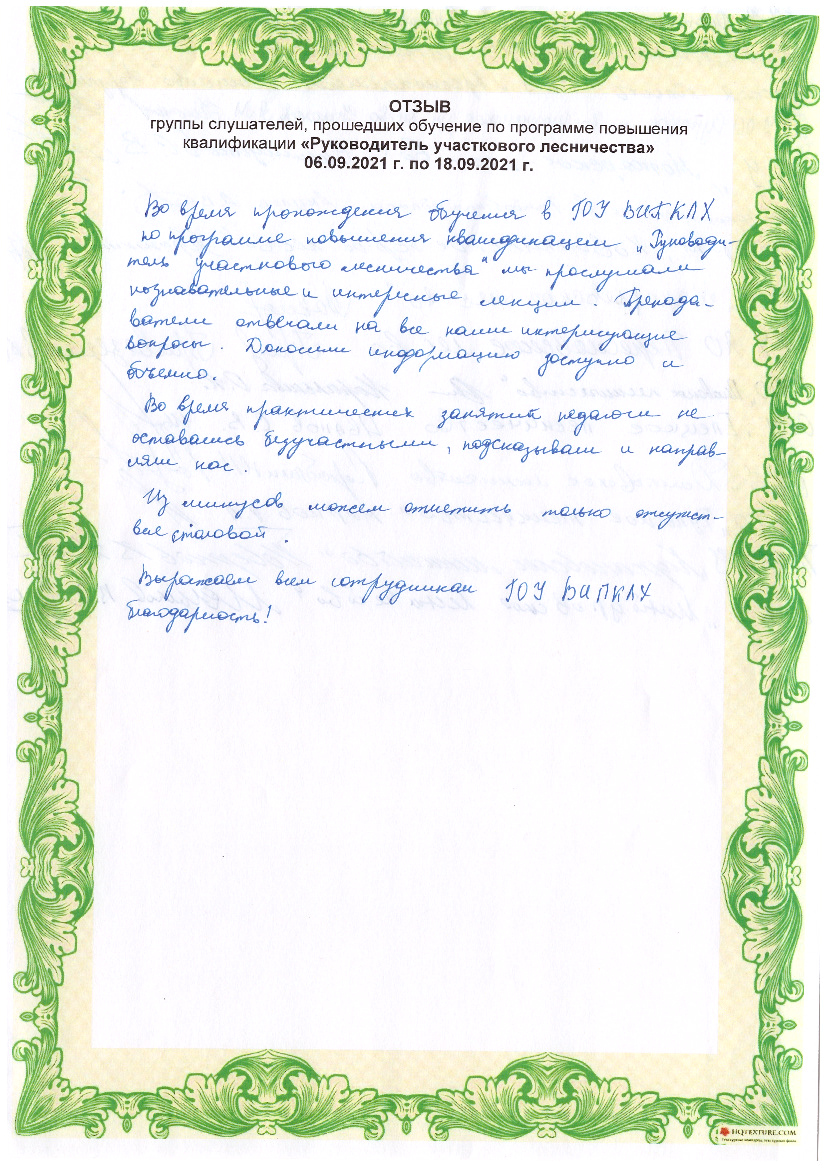 ОТЗЫВ
группы слушателей, прошедших обучение по программе повышения
квалификации «Руководитель участкового лесничества»
06.09.2021 г. по 18.09.2021 г.
Во время прохождения обучения в ГОУ ВИПКЛХ
по программе повышения квалификации „Руководи-
тель участкового лесничества" мы прослушали
познавательные и интересные лекции. Препода-
ватели отвечали на все наши интересующие
вопросы. Доносили информацию доступно и
объемно.
Во время практических занятий педагоги не
оставались безучастными, подсказывали и направ-
ляли нас.
Из минусов можем отметить только отсутст-
вие столовой.
Выражаем всем сотрудникам ГОУ ВИПКЛХ
благодарность!
HQTEXTURE.COM